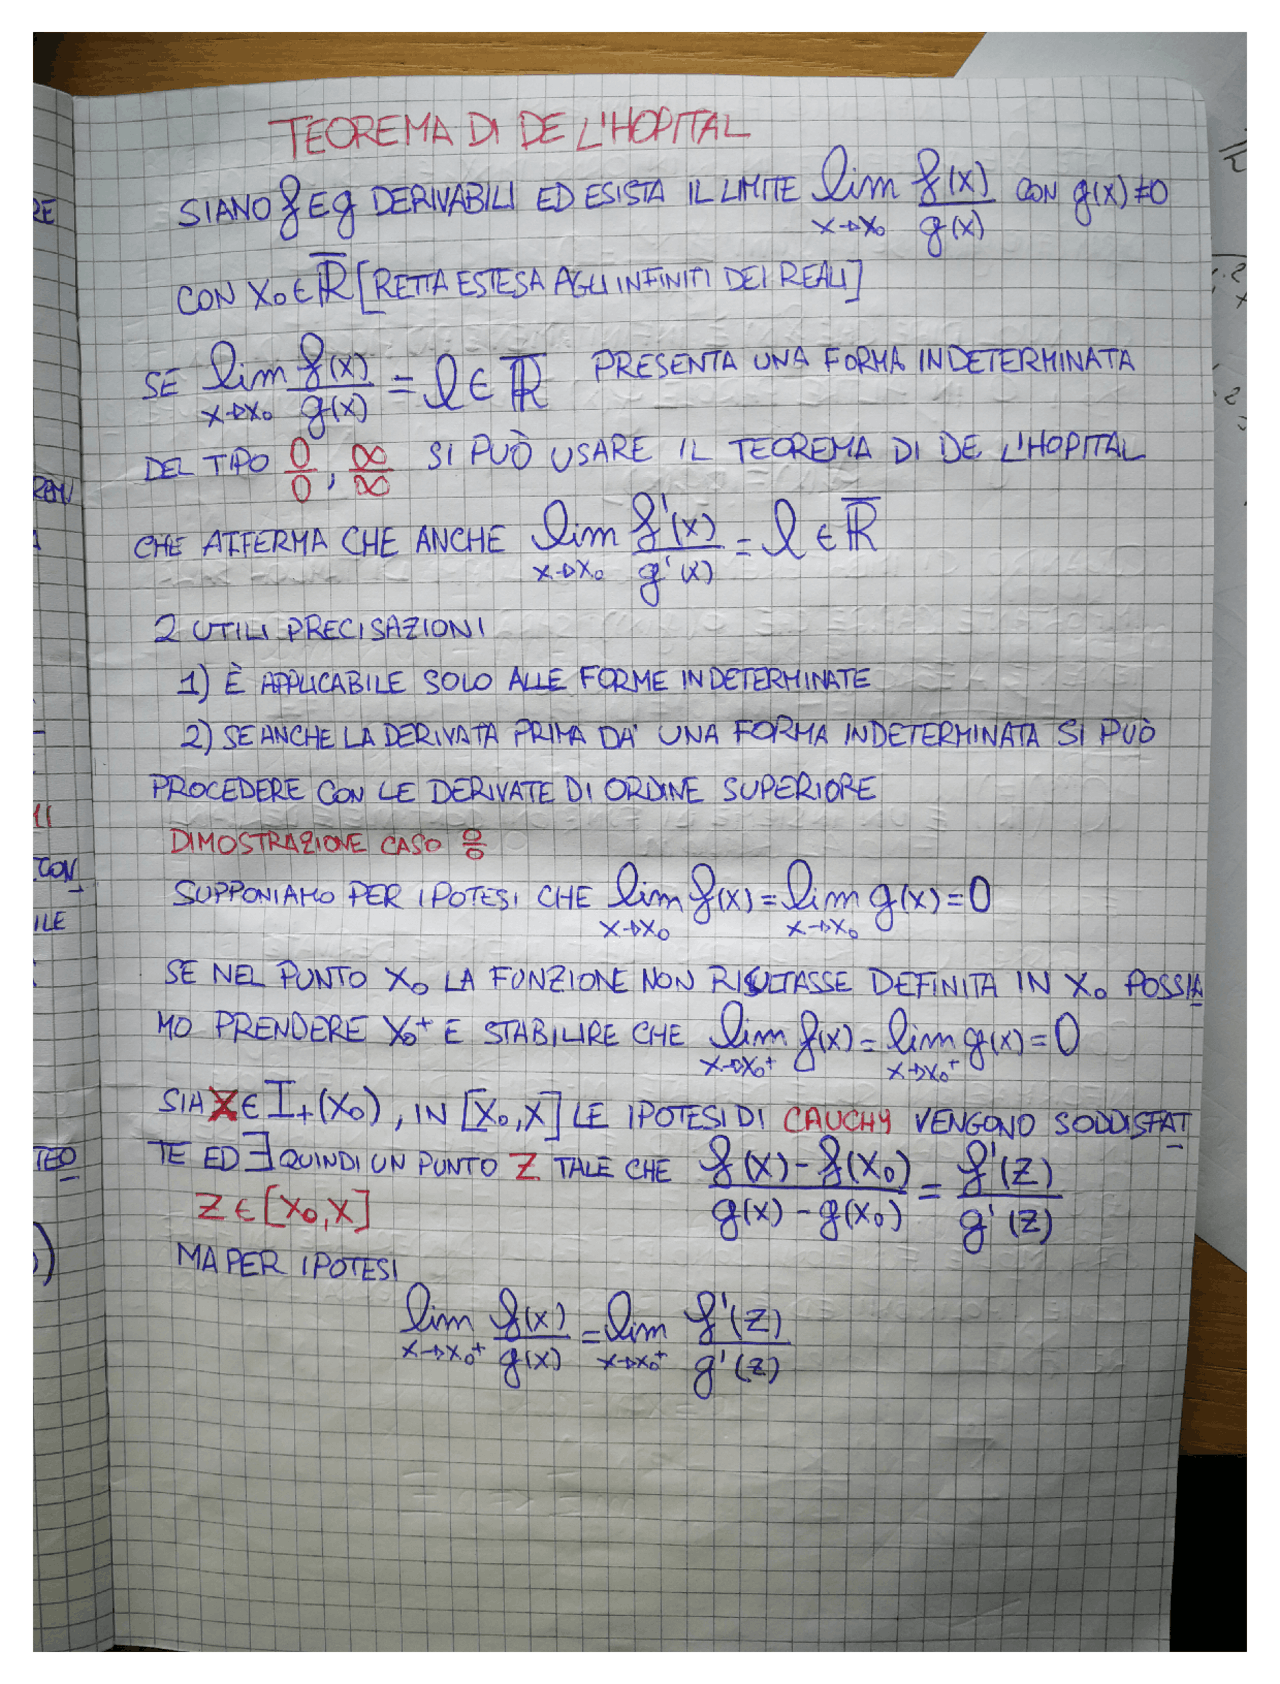 TEOREMA DI DE L'HOPITAL
SIANO f E g DERIVABILI ED ESISTA IL LIMITE lim x→x₀ f(x)/g(x) CON g(x)≠0
CON X₀ ∈ R̅ [RETTA ESTESA AGLI INFINITI DEI REALI]
SE lim x→x₀ f(x)/g(x) = l ∈ R̅ PRESENTA UNA FORMA INDETERMINATA
DEL TIPO 0/0, ∞/∞ SI PUÒ USARE IL TEOREMA DI DE L'HOPITAL
CHE AFFERMA CHE ANCHE lim x→x₀ f'(x)/g'(x) = l ∈ R̅
2 UTILI PRECISAZIONI
1) È APPLICABILE SOLO ALLE FORME INDETERMINATE
2) SE ANCHE LA DERIVATA PRIMA DA' UNA FORMA INDETERMINATA SI PUÒ
PROCEDERE CON LE DERIVATE DI ORDINE SUPERIORE
DIMOSTRAZIONE CASO 0/0
SUPPONIAMO PER IPOTESI CHE lim x→x₀ f(x) = lim x→x₀ g(x) = 0
SE NEL PUNTO X₀ LA FUNZIONE NON RISULTASSE DEFINITA IN X₀ POSSIA
MO PRENDERE X₀⁺ E STABILIRE CHE lim x→x₀⁺ f(x) = lim x→x₀⁺ g(x) = 0
SIA X ∈ I₊(X₀), IN [X₀,X] LE IPOTESI DI CAUCHY VENGONO SODDISFAT
TE ED ∃ QUINDI UN PUNTO Z TALE CHE f(x)-f(x₀)/g(x)-g(x₀) = f'(z)/g'(z)
Z ∈ [X₀,X]
MA PER IPOTESI
lim x→x₀⁺ f(x)/g(x) = lim x→x₀⁺ f'(z)/g'(z)
RE
CON
ILE
TEO